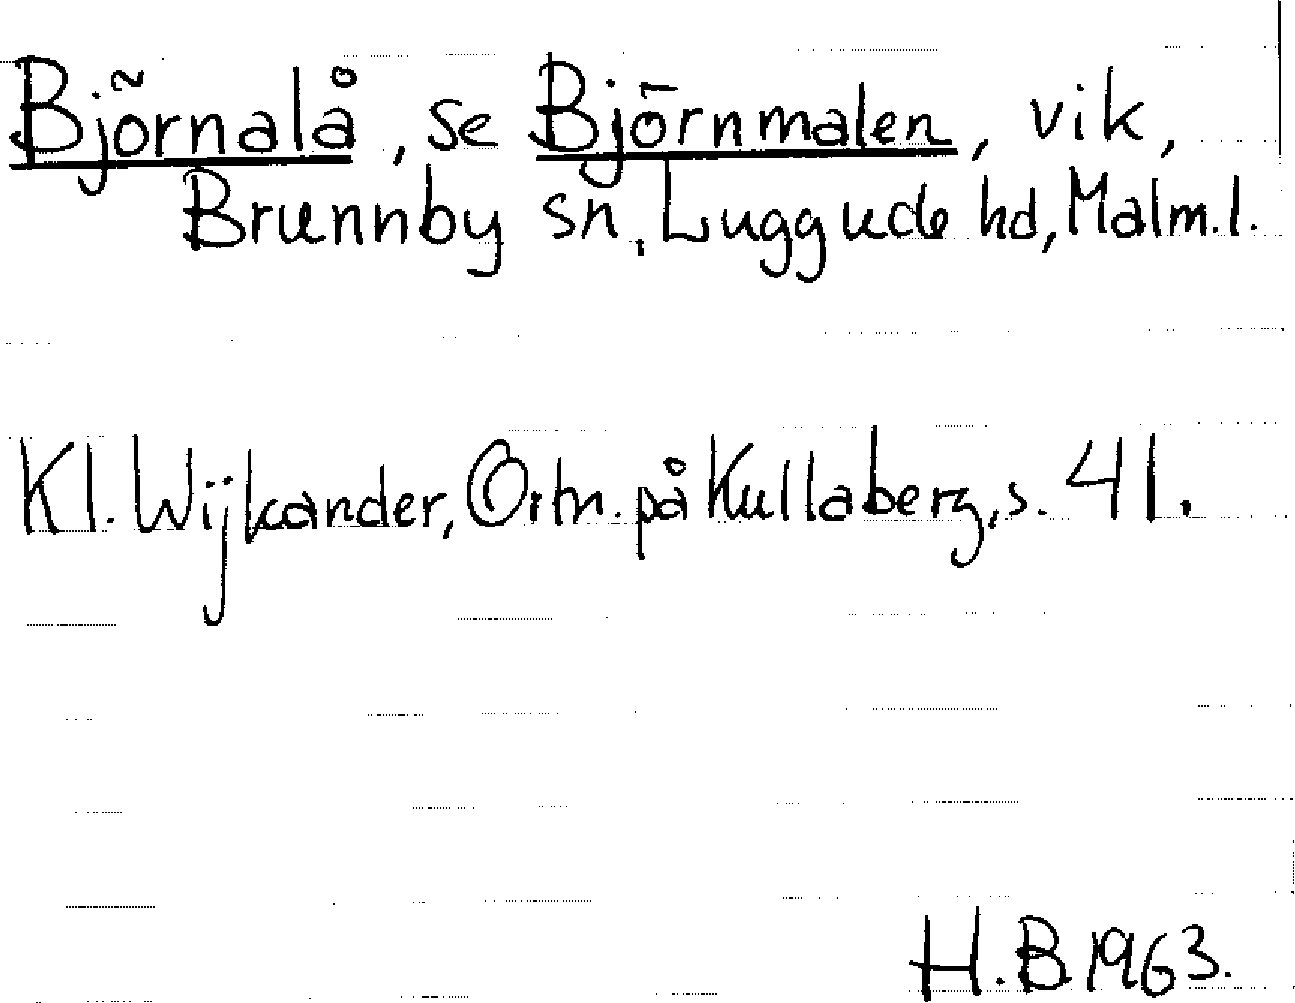 Björnalå, se Björnmalen, vik,
Brunnby sn, Luggude hd, Malm.l.
Kl. Wijkander, Ortn. på Kullaberg, s. 41.
H.B 1963.